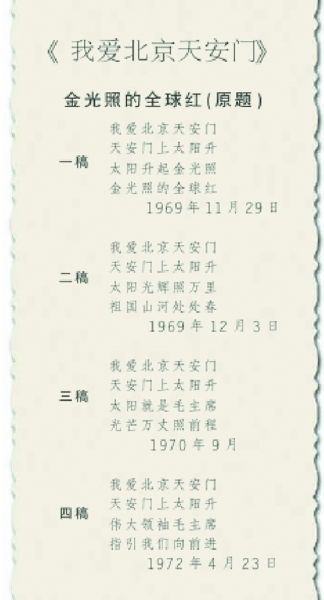 《我爱北京天安门》
金光照的全球红(原题)
一稿
我爱北京天安门
天安门上太阳升
太阳升起金光照
金光照的全球红
1969年11月29日
二稿
我爱北京天安门
天安门上太阳升
太阳光辉照万里
祖国山河处处春
1969年12月3日
三稿
我爱北京天安门
天安门上太阳升
太阳就是毛主席
光芒万丈照前程
1970年9月
四稿
我爱北京天安门
天安门上太阳升
伟大领袖毛主席
指引我们向前进
1972年4月23日